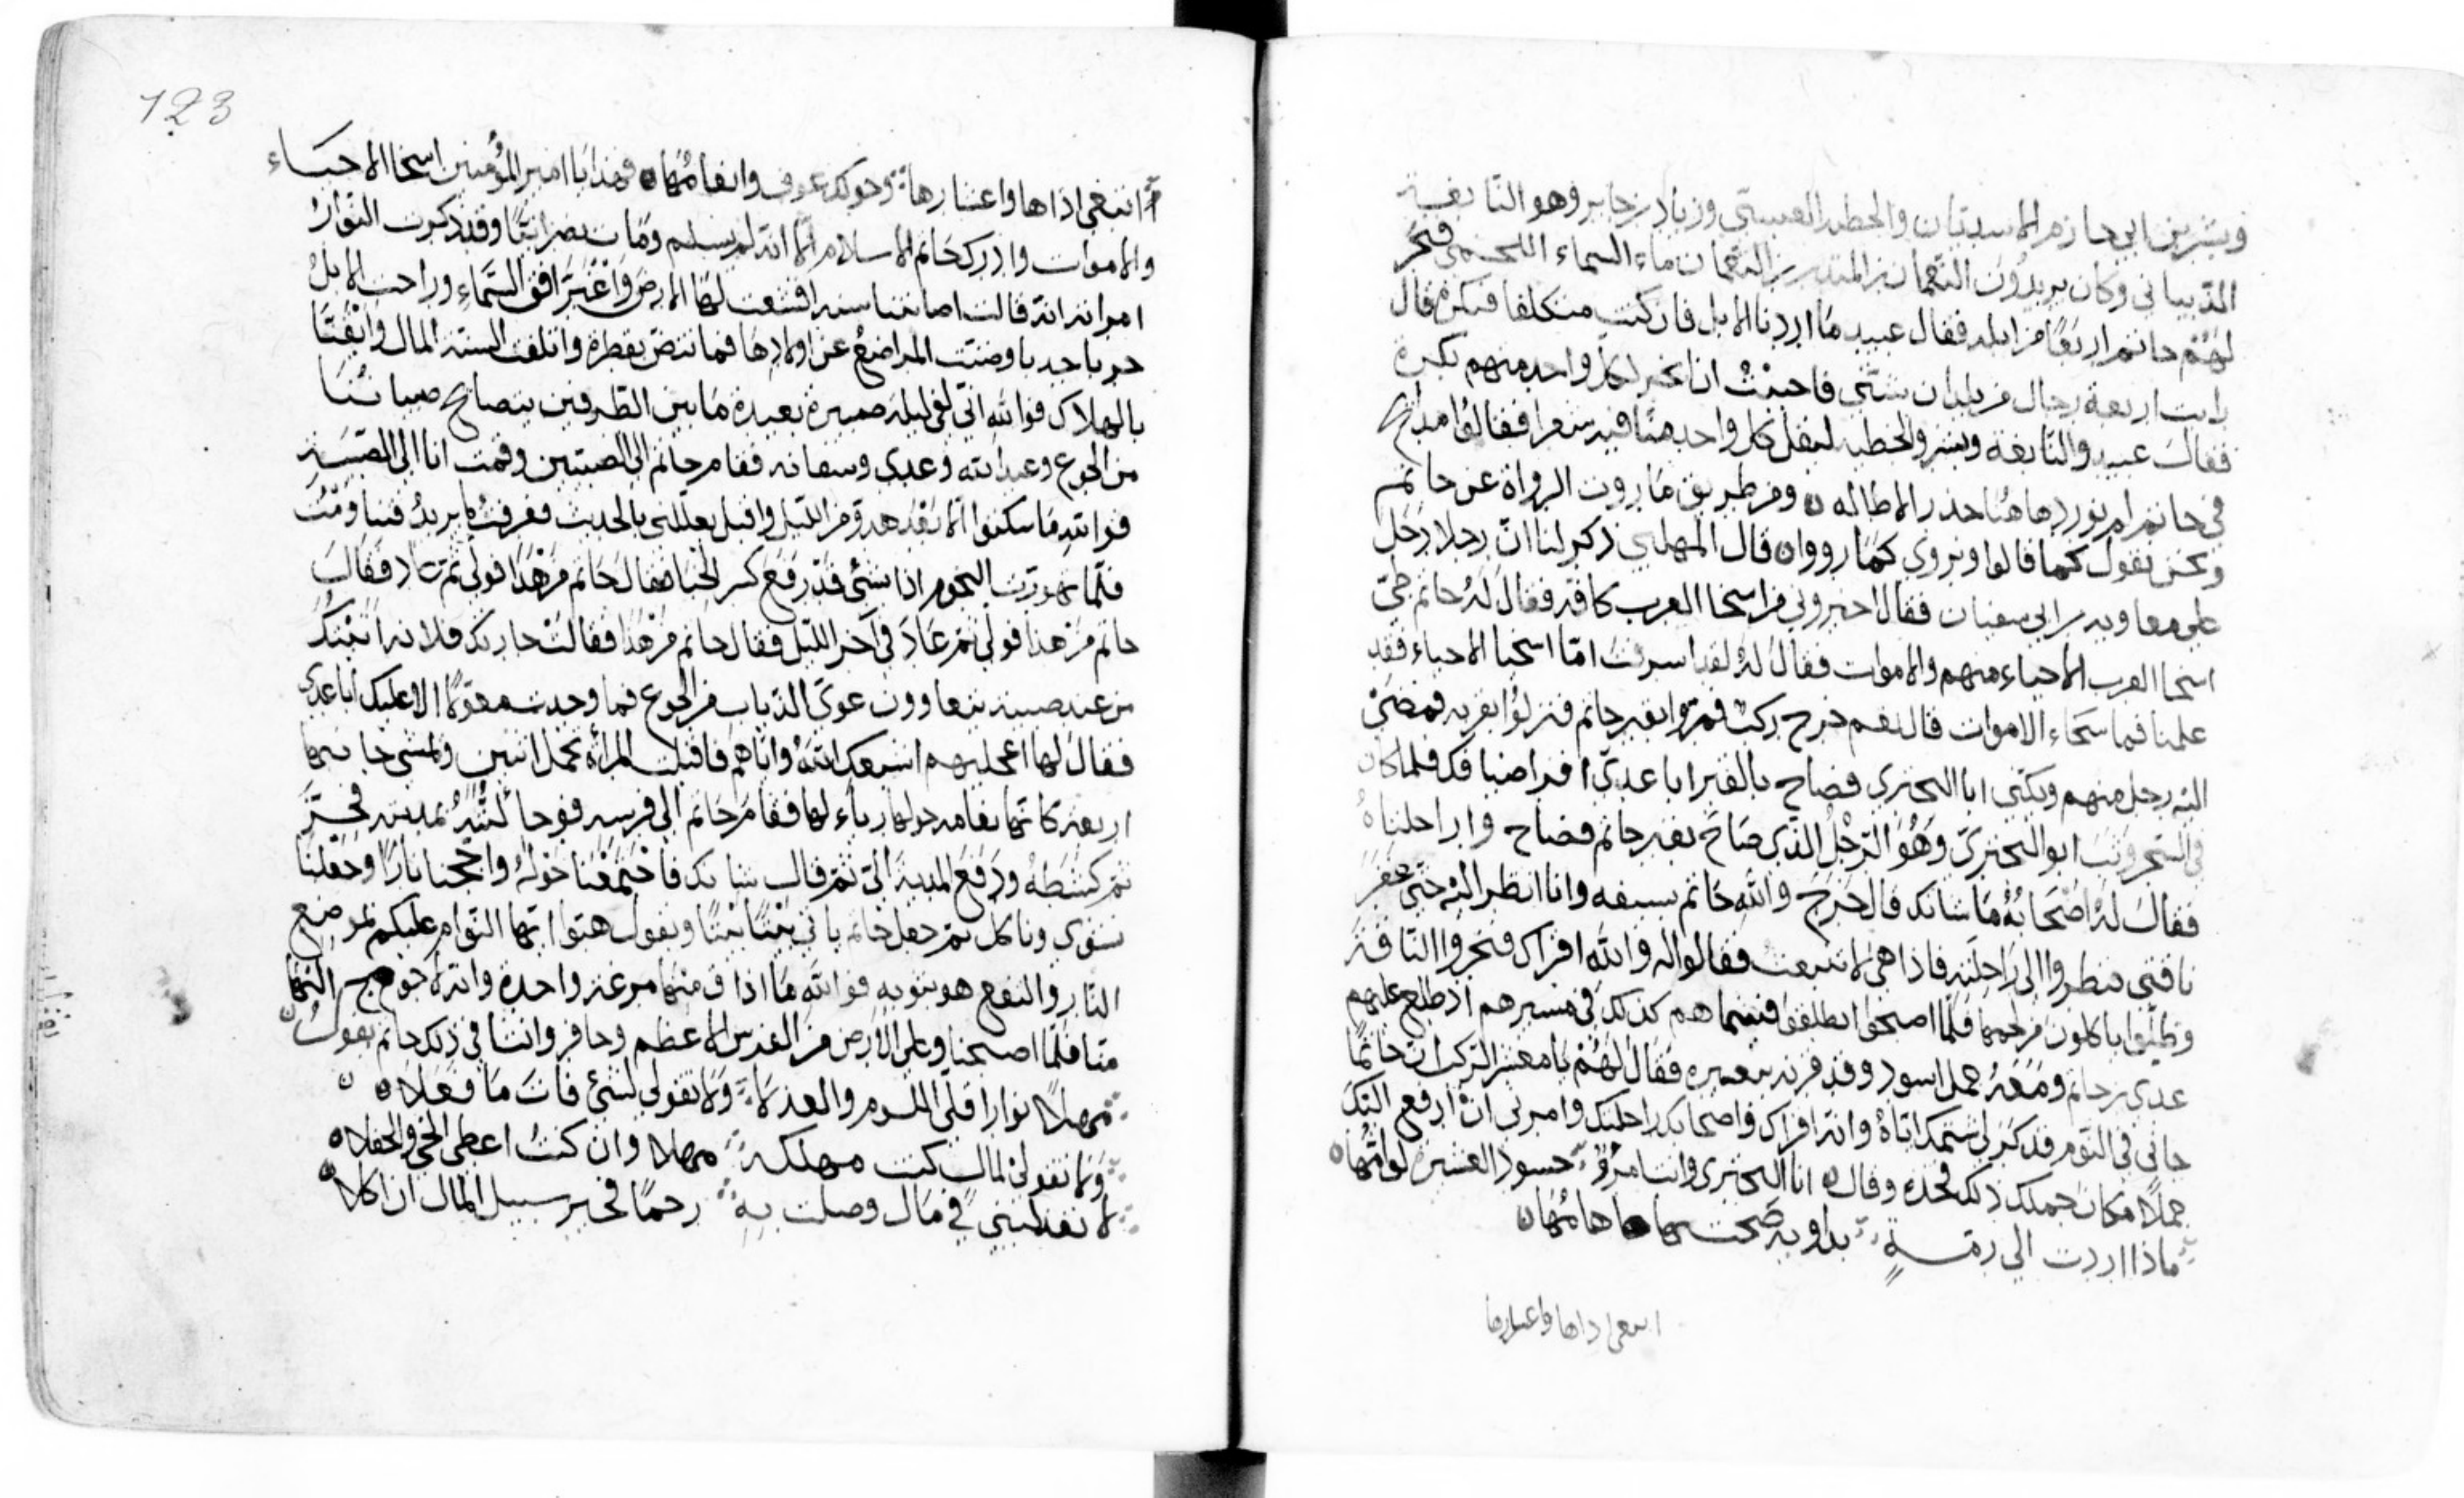 وبشر بن ابي حازم الاسديان والحطيه العبسي وزياد بن جابر وهو النابغة
الذبياني وكان يريدون النعمان بن المنذر بن النعمان ماء السماء اللخمي فنحر
لهم حاتم اربعًا من ابله فقال عبيد ما اردنا الابل فان كنت متكلفا فبكرة قال
رايت اربعة رجال من بلدان شتى فاحببت ان يخبر كل واحد منهم بكرة
فقال عبيد والنابغه وبشر والحطيه ليقل كل واحد منا فيه شعرا فقالوا مدايح
في حاتم لم نوردها هنا حذر الاطاله ومن طريق ما روت الرواة عن حاتم
ونحن نقول كما قالوا ونروي كما رووا قال المهلبي ذكر لنا ان رجلا دخل
على معاويه بن ابي سفيان فقال اخبروني من اسخا العرب كافة فقال له حاتم طي
اسخا العرب الاحياء منهم والاموات فقال له لقد اسرفت اما اسخا الاحياء فقد
علمنا فما سخاء الاموات قال نعم خرج ركب فمروا بقبر حاتم فنزلوا بقربه فمضى
اليه رجل منهم ويكنى ابا البختري فصاح بالقبر ابا عدي اقر اضيافك فلما كان
في السحر وثب ابو البختري وهو الرجل الذي صاح بقبر حاتم فصاح وا راحلتاه
فقال له اصحابه ما شانك قال خرج والله حاتم بسيفه وانا انظر اليه حتى عقر
ناقتي فنظروا الى راحلته فاذا هي لا تنبعث فقالوا له والله اقراك فنحروا الناقة
وظلوا ياكلون من لحمها فلما اصبحوا انطلقوا فبينما هم كذلك في مسيرهم اذ طلع عليهم
عدي بن حاتم ومعه جمل اسود وقد قرنه ببعيره فقال لهم يا معشر الركب ان حاتما
جاني في النوم فذكر لي شتمك اياه وانه اقراك واصحابك راحلتك وامرني ان ارفع اليك
جملا مكان جملك ذلك فخده وقال ابا البختري وانت امرؤ حسود العشيرة لوامها
ماذا اردت الى رمة بداوية صحت بها هامها
اتبغي اذاها واعسارها
اتبغي اذاها واعسارها وحولك عوف وانعامها فهذا يا امير المؤمنين اسخا الاحياء
والاموات وادرك حاتم الاسلام الا انه لم يسلم ومات نصرانيًا وقد ذكرت النوار
امراته انه قالت اصابتنا سنة اقشعت لها الارض واغبر افق السماء وراحت الابل
حدبا جدبا وضنت المراضع عن اولادها فما تبض بقطرة واتلفت السنة المال وايقنا
بالهلاك فوالله اني لفي ليلة صبيرة بعيدة ما بين الطرفين يتصايح صبياننا
من الجوع وعبد الله وعدي وسفانه فقام حاتم الى الصبيين وقمت انا الى الصبية
فوالله ما سكتوا الا بعد هدوة من الليل واقبل يعللني بالحديث فعرفت ما يريد فتناومت
فلما تهورت النجوم اذا شئ قد رفع كسر الخبا فقال حاتم من هذا فولى ثم عاد فقال
حاتم من هذا فولى ثم عاد في آخر الليل فقال حاتم من هذا فقالت جارتك فلانه اتيتك
من عند صبية يتعاوون عوي الذياب من الجوع فما وجدت معولا الا عليك ابا عدي
فقال لها اعجليهم اشبعك الله واياهم فاقبلت المراة تحمل اثنين وتمشي جانبها
اربعة كانها نعامه حولها رياء لها فقام حاتم الى فرسه فوجا لبته بمديته فخر
ثم كشطه ودفع المدية الي ثم قال شانك فاجتمعنا حوله واججنا نارًا وجعلنا
نشوي وناكل ثم جعل حاتم ياتي بيتا بيتا ويقول هبوا ايها النوام عليكم بموضع
النار والتفع هو بثوبه فوالله ما اذاق منها مزعة واحدة وانه لاحوج اليها
منا فلما اصبحنا وعلى الارض من الفرس الاعظم وحافر وانشا في ذلك حاتم يقول
مهلا نوار اقلي اللوم والعذلا ولا تقولي لشئ فات ما فعلا
ولا تقولي لمال كنت مهلكه مهلا وان كنت اعطي الجن والخبلا
لا تعذليني في مال وصلت به رحما فخير سبيل المال ان اكلا
123